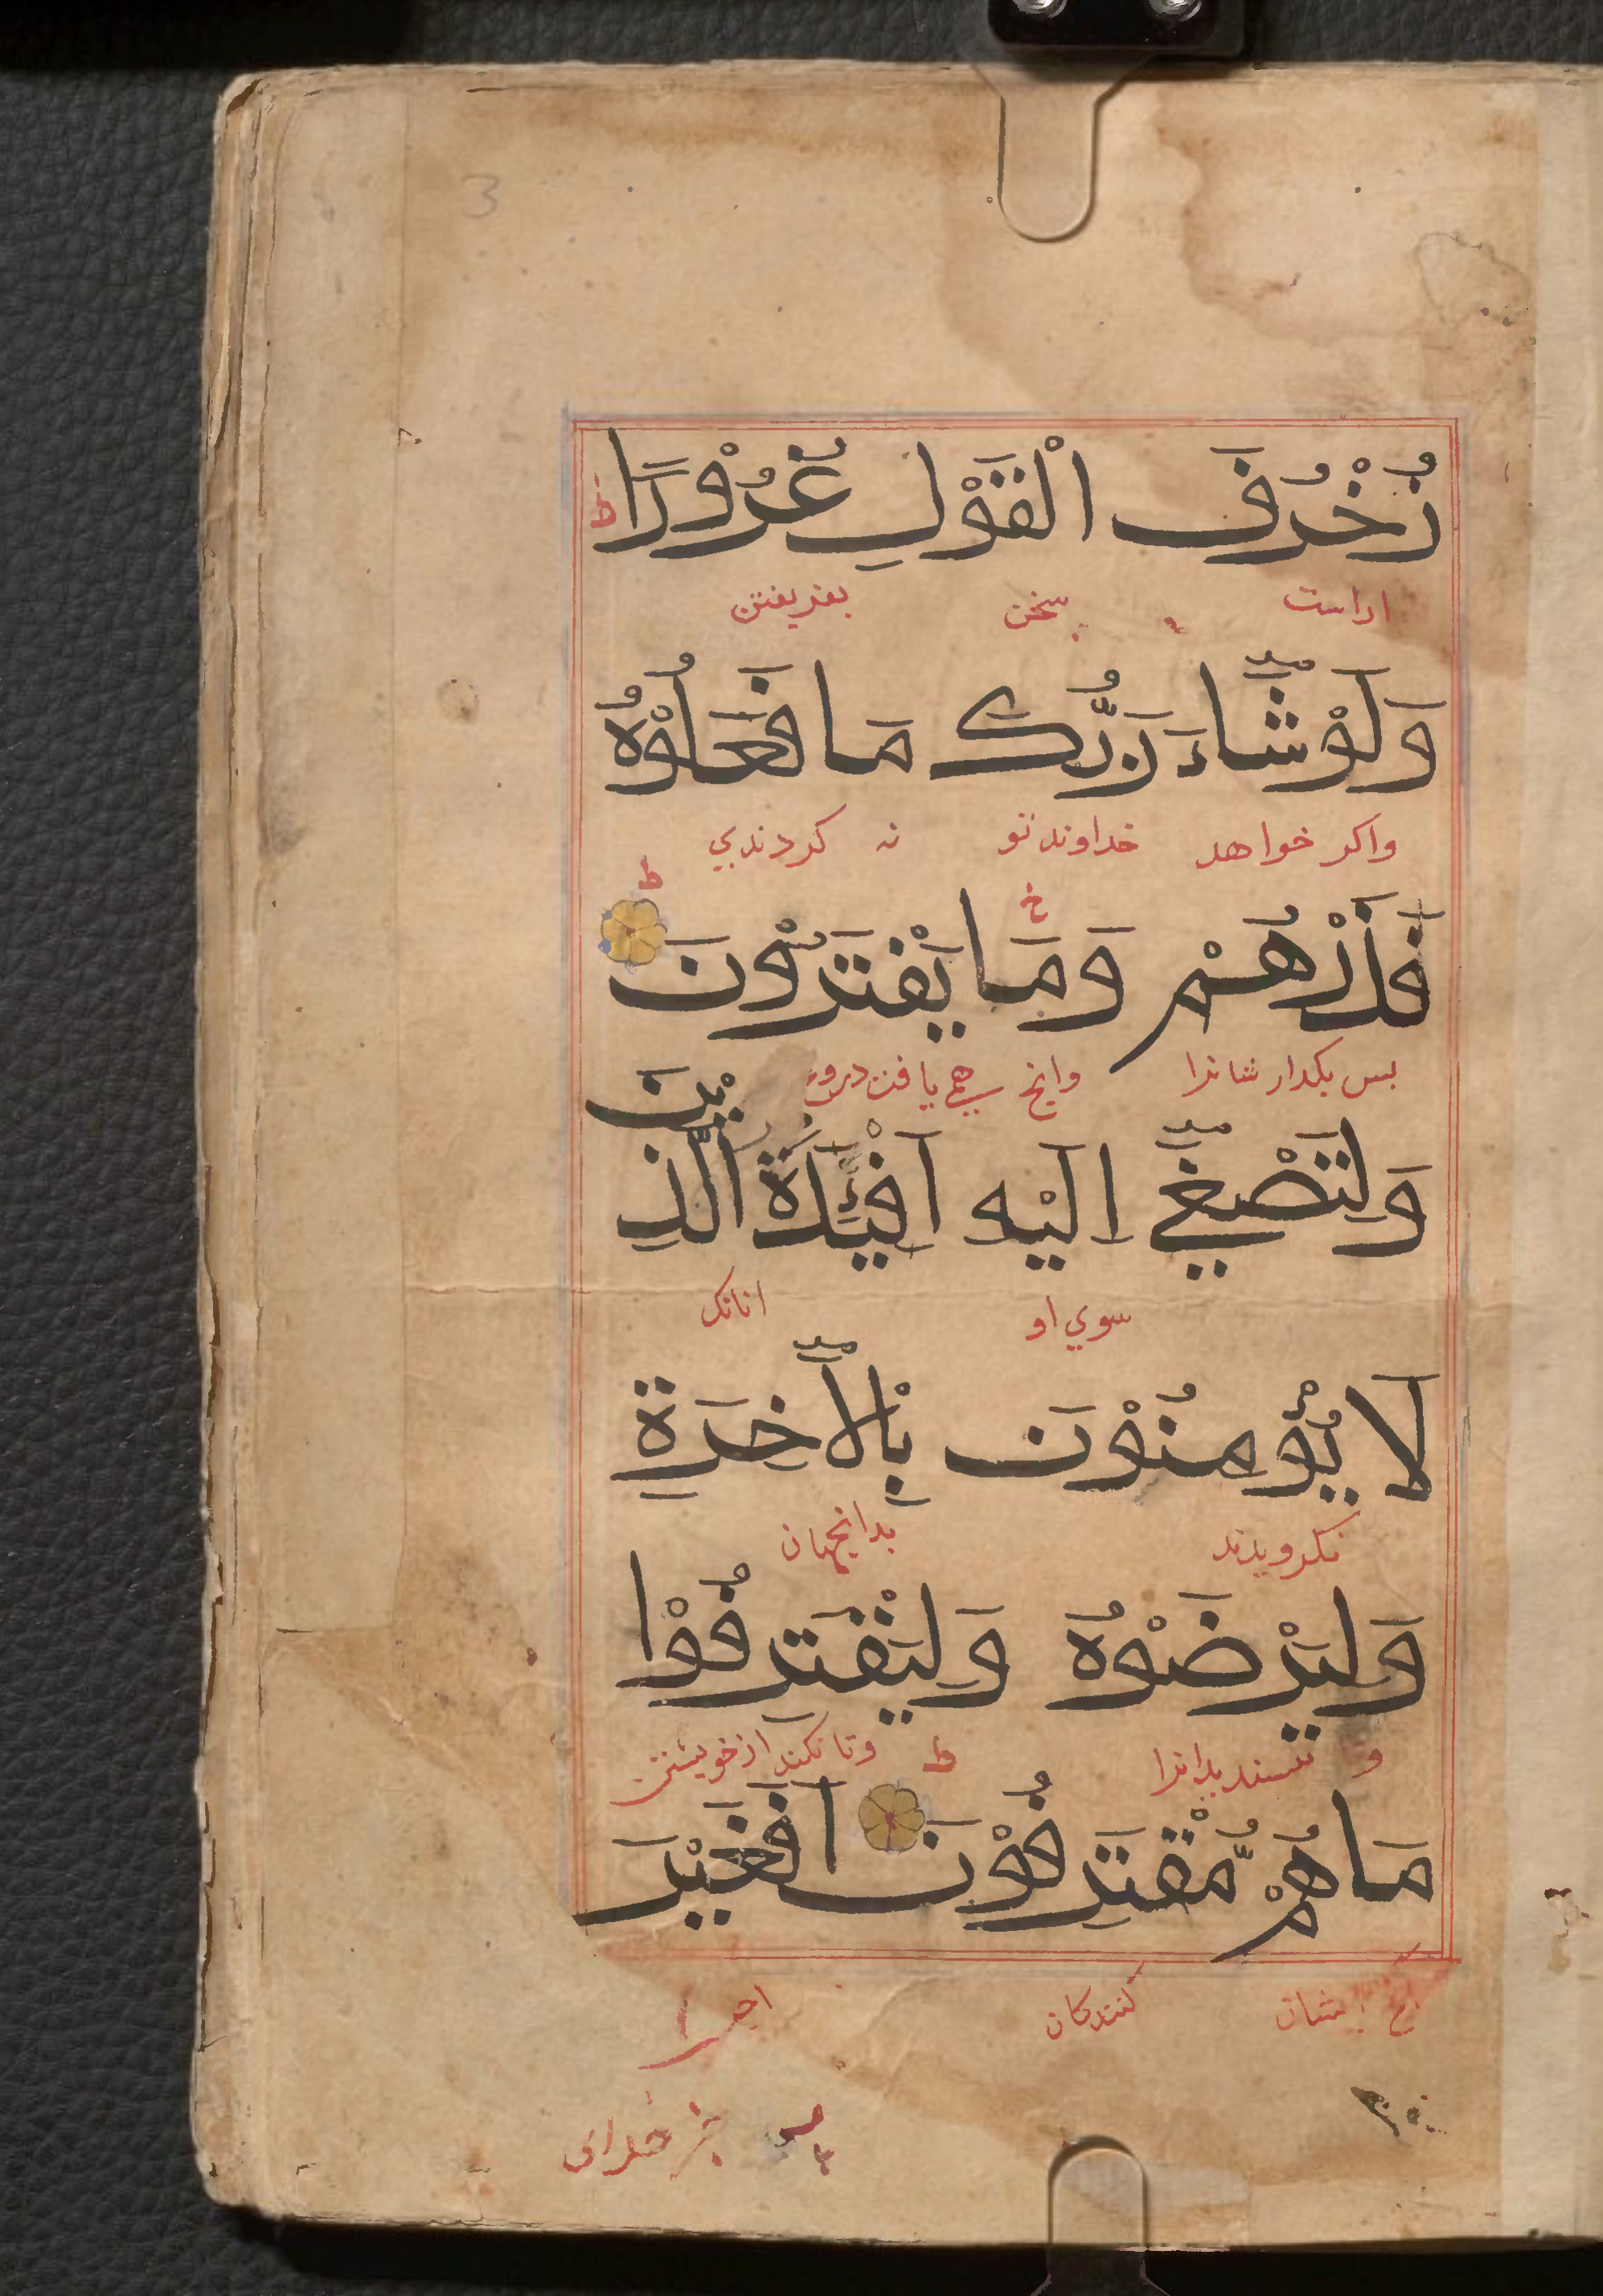 3
زُخْرُفَ الْقَوْلِ غُرُوْرًا ط
اراست سخن بفریفتن
وَلَوْ شَآءَ رَبُّكَ مَا فَعَلُوْهُ
واکر خواهد خداوند تو نه کردندیي
ط
فَذَرْهُمْ وَمَا يَفْتَرُوْنَ
بس بکدار شانرا وانچ همي یافند دروغ
وَلِتَصْغٰٓي اِلَيْهِ اَفْئِدَةُ الَّذِيْنَ
سوي او انانک
لَا يُؤْمِنُوْنَ بِالْاٰخِرَةِ
نکرویدند بدانجهان
وَلِيَرْضَوْهُ وَلِيَقْتَرِفُوْا
و بسندیدانرا ط وتا بکنند از خویشتن
مَا هُمْ مُّقْتَرِفُوْنَ اَفَغَيْرَ
ایشان کنندکان
خدای